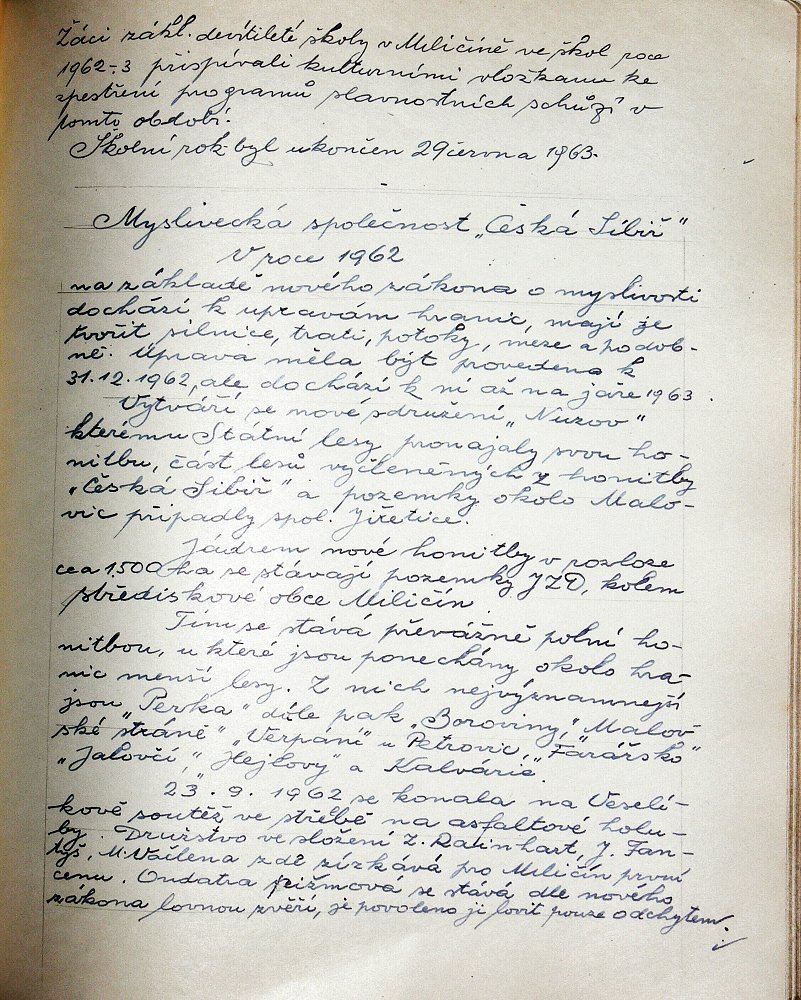 Žáci zákl. devítileté školy v Miličíně ve škol roce
1962-3 přispívali kulturními vložkami ke
zpestření programů slavnostních schůzí v
tomto období.
Školní rok byl ukončen 29 června 1963.
Myslivecká společnost „Česká Sibiř"
V roce 1962
na základě nového zákona o myslivosti
dochází k upravám hranic, mají je
tvořit silnice, trati, potoky, meze a podob-
ně. Úprava měla být provedena k
31.12.1962, ale dochází k ní až na jaře 1963.
Vytváří se nové sdružení „Nuzov"
kterému Státní lesy pronajaly svou ho-
nitbu, část lesů vyčleněných z honitby
„Česká Sibiř" a pozemky okolo Malo-
vic připadly spol. Jiřetice.
Jádrem nové honitby v rozloze
cca 1.500 ha se stávají pozemky JZD, kolem
střediskové obce Miličín.
Tím se stává převážně polní ho-
nitbou, u které jsou ponechány okolo hra-
nic menší lesy. Z nich nejvýznamnejší
jsou „Perka" dále pak „Boroviny," Malov-
ské stráně" „Verpání" u Petrovic, „Farářsko"
„Jalovčí," „Hejlovy" a Kalvárie.
23.9. 1962 se konala na Veselí-
kově soutěž ve střelbě na asfaltové holu-
by. Družstvo ve složení Z. J. Fan-
tyš, M. zde získává pro Miličín první
cenu. Ondatra pižmova se stává dle nového
zákona lovnou zvěří, je povoleno ji lovit pouze odchytem.